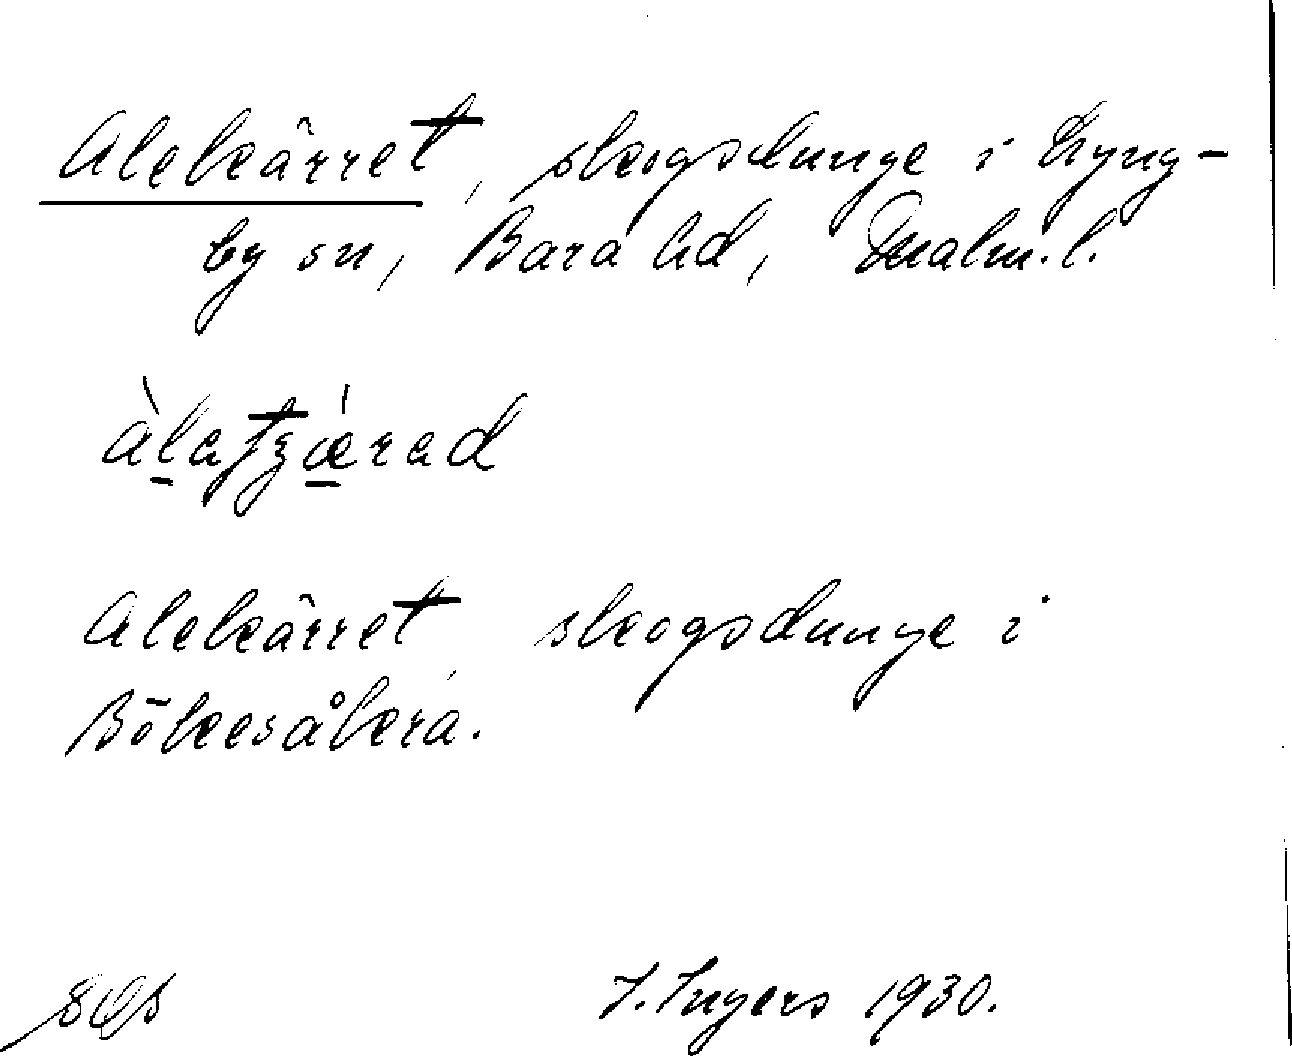 Alekärret, skogsdunge i Lyng-
by sn, Bara hd, Malm.l.
àlatʒǽrad
Alekärret, skogsdunge i
Bökesåkra.
I. Ingers 1930.